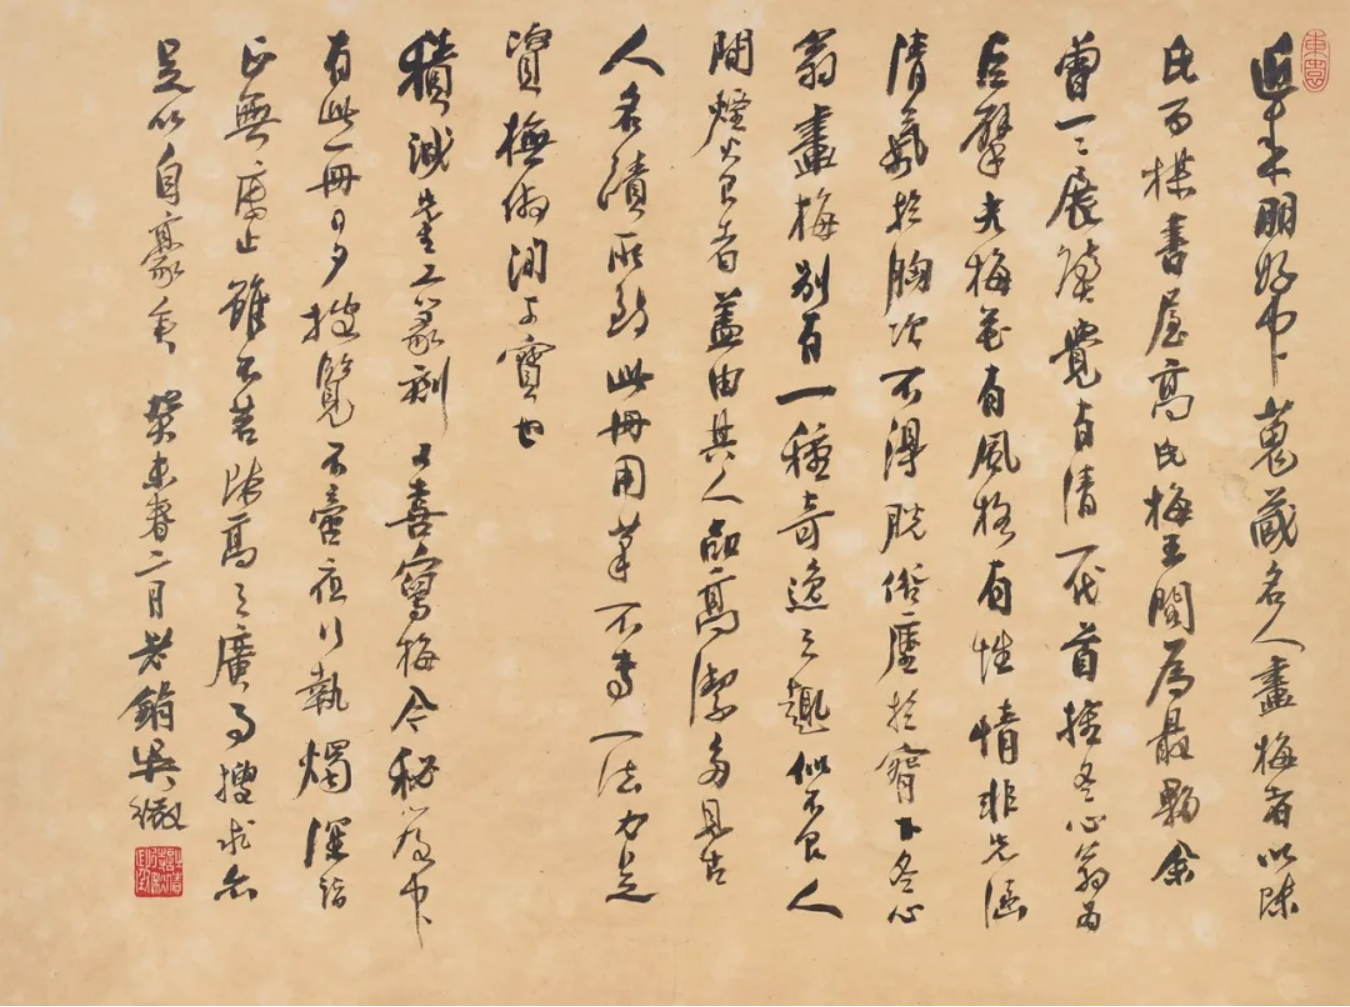 近來朋好中蒐藏名人畫梅者以陳
氏百楳書屋高氏梅王閣為最夥余
曾一二展讀覺有清一代首推冬心翁為
巨擘夫梅花有風格有性情非先涵
清氣於胸次不得脫俗塵於窅中冬心
翁畫梅別有一種奇逸之趣似不食人
間煙火食者蓋由其人品高潔多見古
人名蹟所致此冊用筆不專一法力足
資橅仿洵可寶也
積誠先生工篆刻又喜寫梅今秘笈中
有此一冊日夕披覽不啻夜行執燭深詣
正無底止雖不若陳高之廣事搜求亦
足以自豪矣 癸未春二月老鋗吳徵